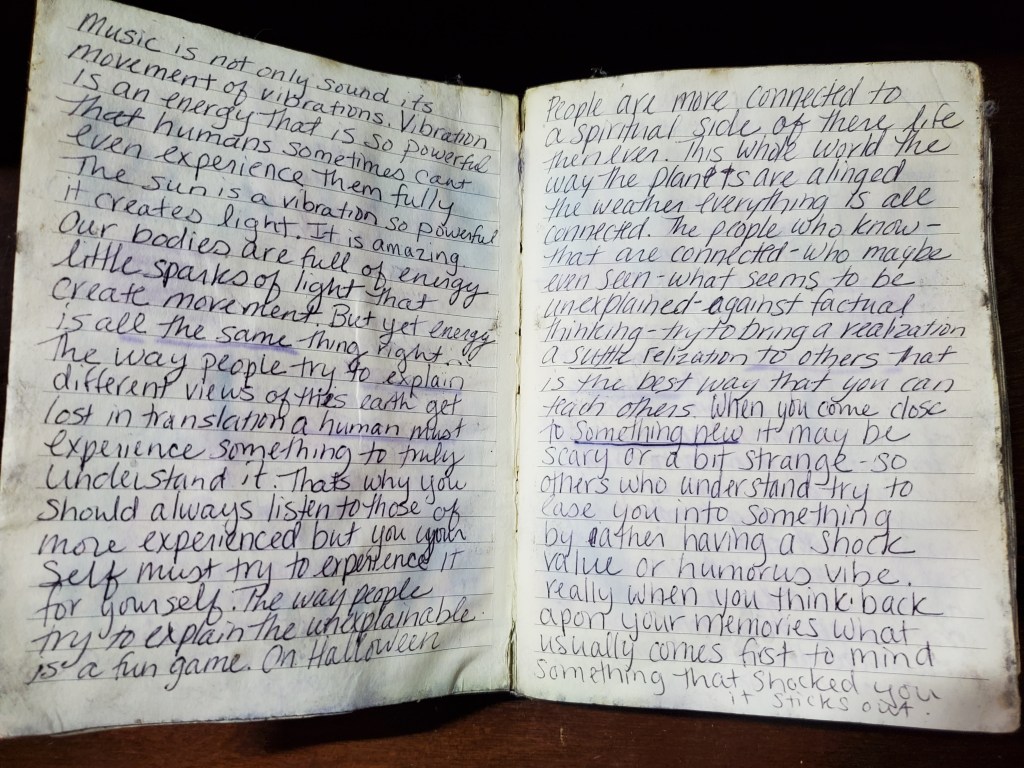 Music is not only sound its
movement of vibrations. Vibration
is an energy that is so powerful
that humans sometimes cant
even experience them fully
The sun is a vibration so powerful
it creates light. It is amazing.
Our bodies are full of energy
little sparks of light that
create movement. But yet energy
is all the same thing right...
The way people try to explain
different views of this earth get
lost in translation a human must
experience something to truly
understand it. Thats why you
should always listen to those of
more experienced but you your
self must try to experience it
for yourself. The way people
try to explain the unexplainable
is a fun game. On Halloween
People are more connected to
a spiritual side of there life
then ever. This whole world the
way the planets are alinged
the weather everything is all
connected. The people who know-
that are connected-who maybe
even seen-what seems to be
unexplained-against factual
thinking-try to bring a realization
a suttle relization to others that
is the best way that you can
teach others when you come close
to something new it may be
scary or a bit strange-so
others who understand try to
ease you into something
by eather having a shock
value or humorus vibe.
really when you think back
apon your memories what
usually comes fist to mind
something that shocked you
it sticks out.